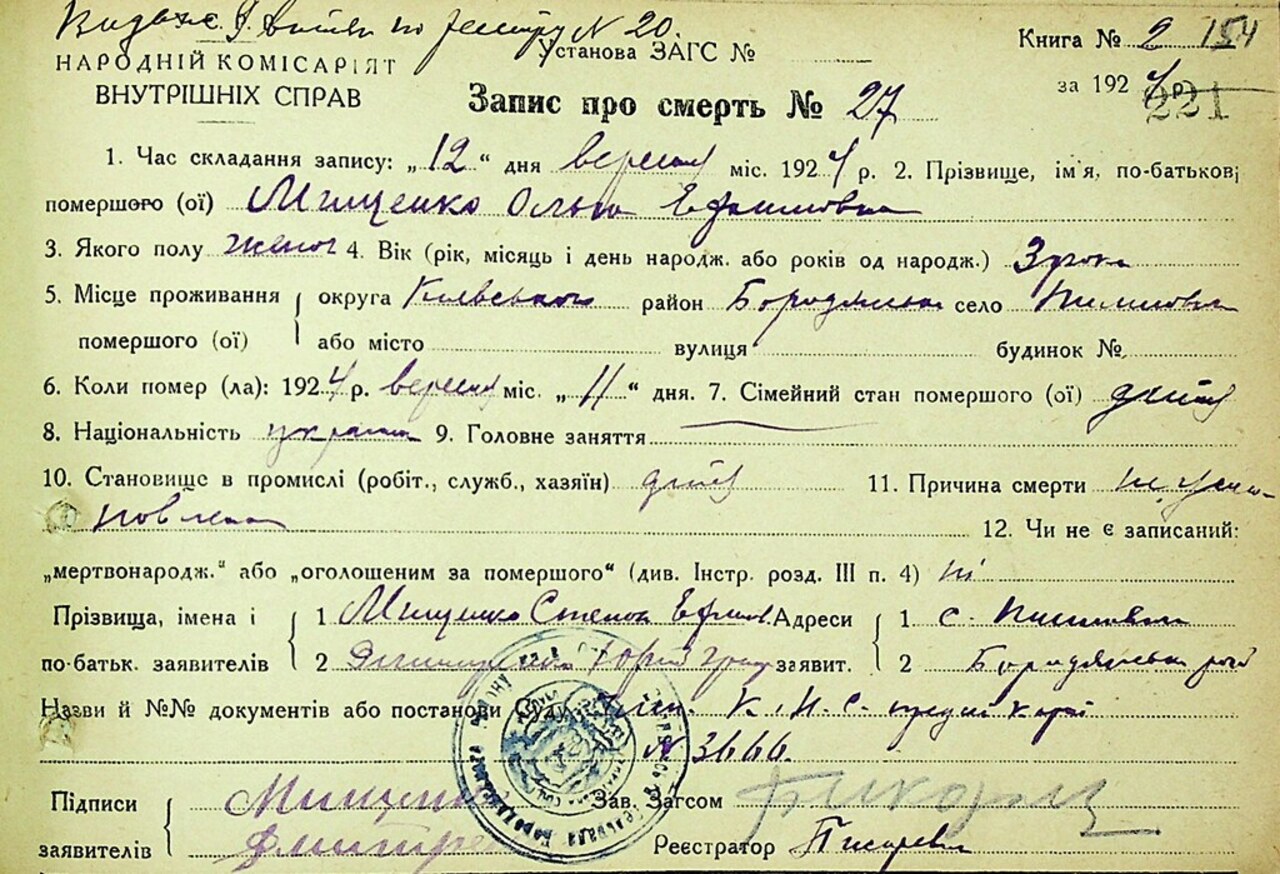 по реєстру N 20.
Установа ЗАГС № Книга № 2 154
НАРОДНІЙ КОМІСАРІЯТ
ВНУТРІШНІХ СПРАВ за 1924 р. 221
Запис про смерть № 27
1. Час складання запису: „12“ дня вересня міс. 1924 р. 2. Прізвище, ім'я, по-батькові
помершого (ої) Мищенко Ольга Ефимовна
3. Якого полу женог 4. Вік (рік, місяць і день народж. або років од народж.) 3 рока
5. Місце проживання округа Киевського район Бородянськ село
помершого (ої) або місто вулиця будинок №
6. Коли помер (ла): 1924 р. вересня міс. „11“ дня. 7. Сімейний стан помершого (ої) дитя
8. Національність україн 9. Головне заняття
10. Становище в промислі (робіт., служб., хазяїн) дитя 11. Причина смерти не уста-
новлена 12. Чи не є записаний:
„мертвонародж.“ або „оголошеним за помершого“ (див. Інстр. розд. III п. 4) ні
Прізвища, імена і 1 Мищенко Степан Ефимов Адреси 1 с.
по-батьк. заявителів 2 Юрий заявит. 2 Бородянськ
Назви й №№ документів або постанови суду К.Н.С.
N 3666.
Підписи Мищенко Зав. Загсом
заявителів Реєстратор Писаревич